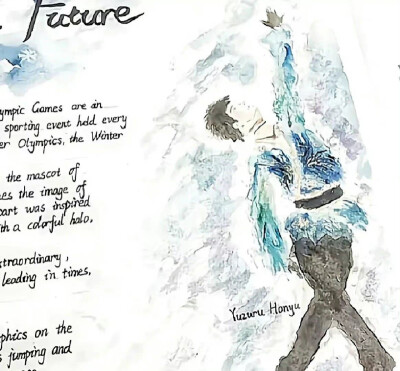 Future
ympic Games are an
sporting event held every
er Olympics, the Winter
the mascot of
es the image of
part was inspired
th a colorful halo.
traordinary,
leading in times,
phics on the
s jumping and
Yuzuru Hanyu